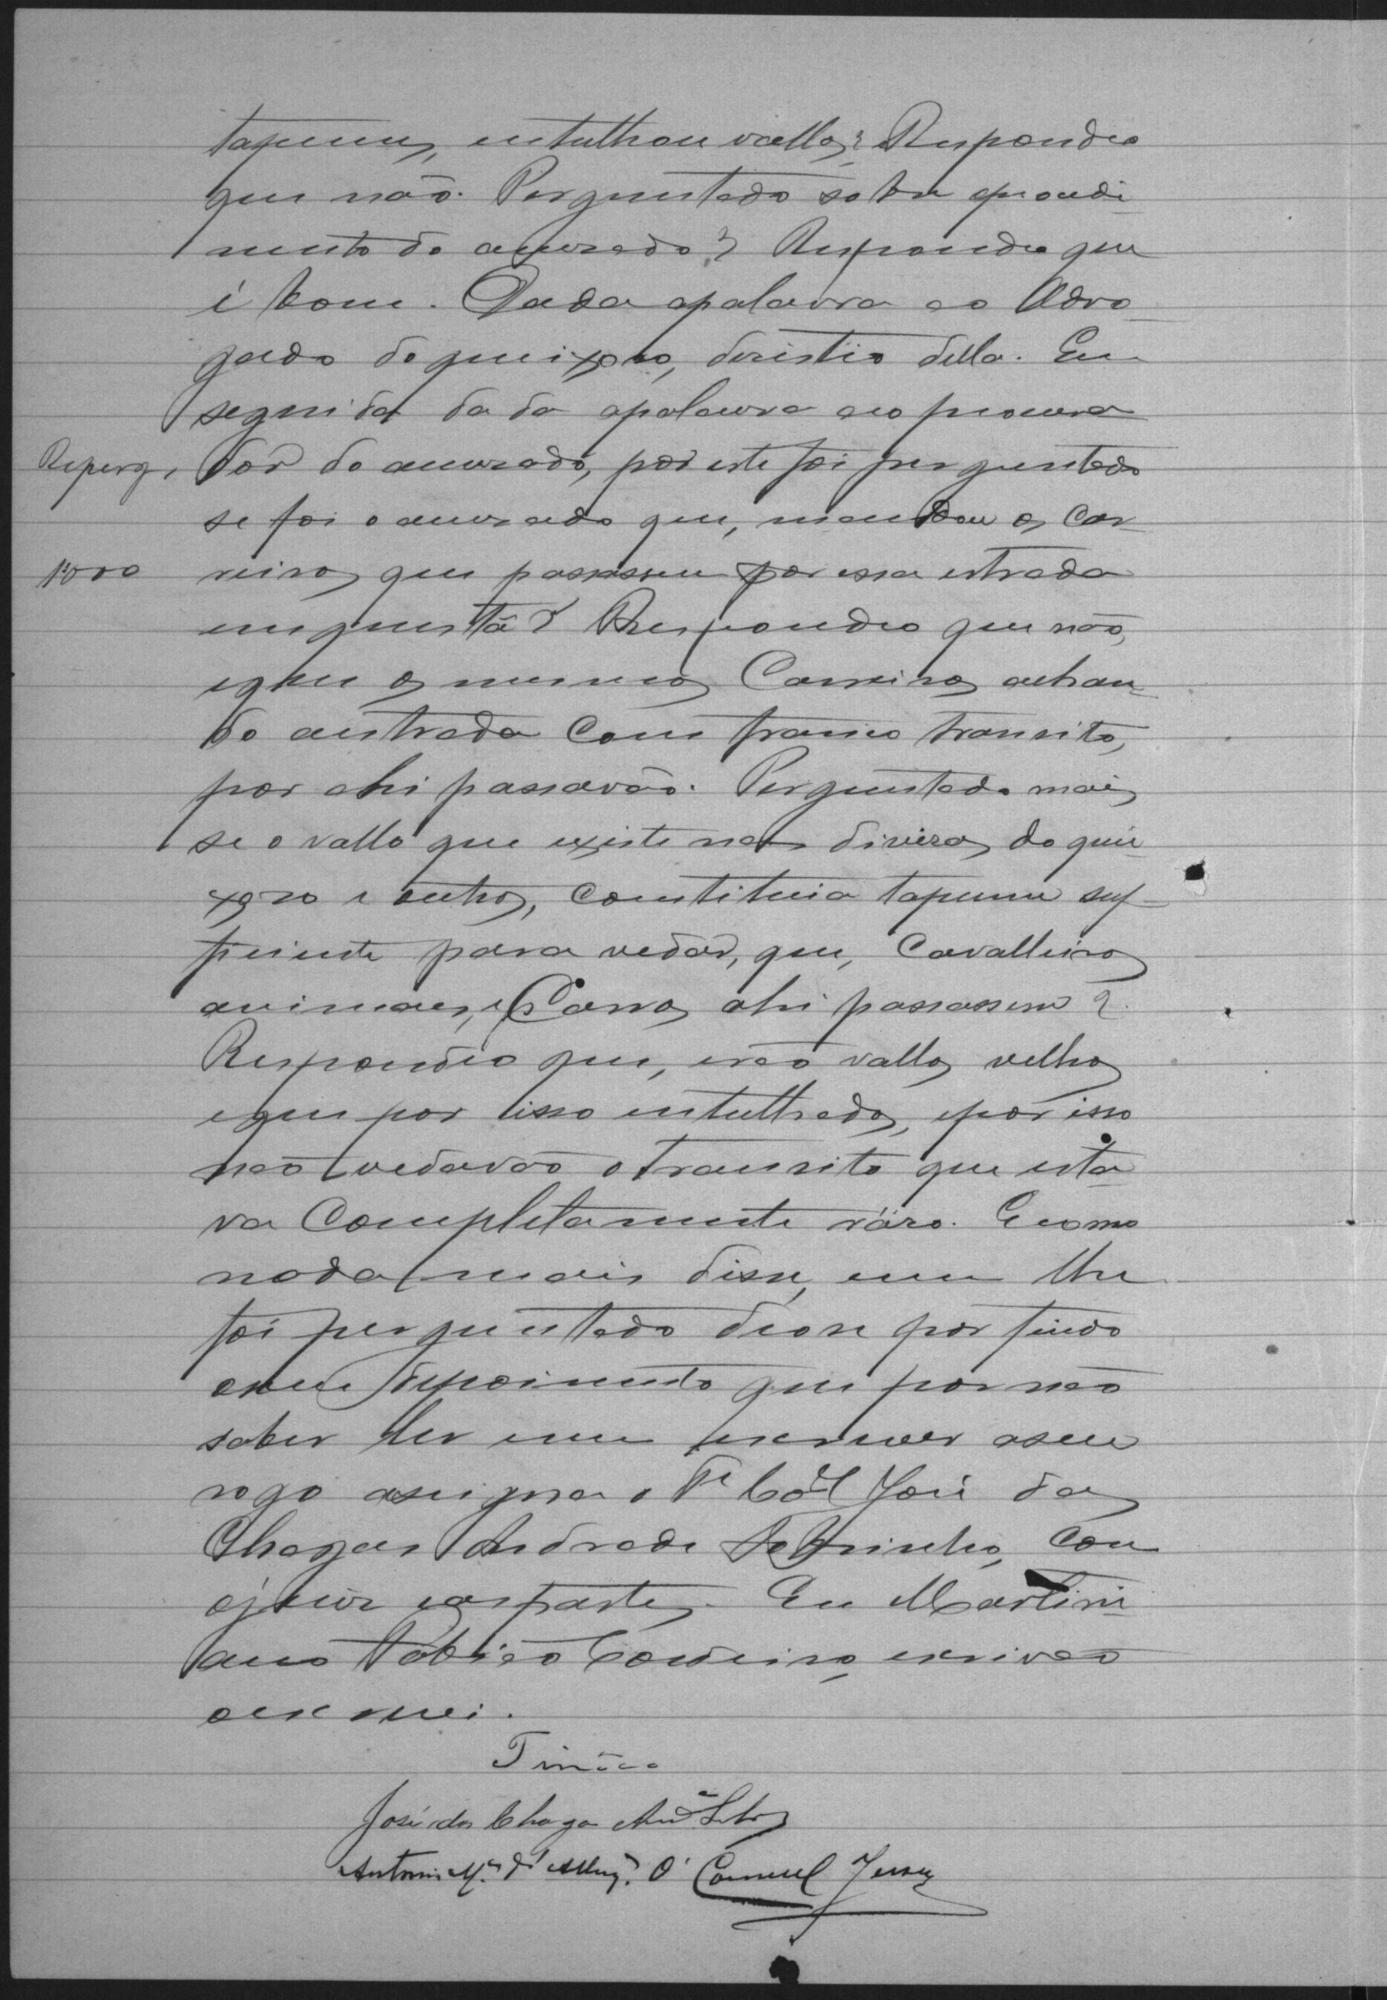 tapumes, entulhou vallos? Respondeo
que não. Perguntado sobre procedi-
mento do accusado? Respondeo que
é bom. Dada apalavra ao Advo-
gado do queixoso, desistio della. Em
seguida dada apalavra ao procura
dor do accusado, por este foi perguntado
Reperg.
se foi o accusado que, mandou os Car-
reiros que passassem por essa estrada
1000
em questã? Respondeo que não,
eque os mesmos Carreiros achan-
do aestrada com franco transito,
por ahi passavão. Perguntado mais
se o vallo que existe nas divisas do quei-
xoso e outros, constituia tapume suf-
ficiente para vedar, que, Cavalleiros
animaes, e Carros ahi passassem?
Respondeo que, erão vallos velhos
eque por isso entulhados, epor isso
não vedavão o transito que esta-
va Completamente ráso. E como
nada mais disse, nem lhe
foi perguntado deose por findo
oseu depoimento que por não
saber ler nem escrever aseu
rogo assigna o Te Col José das
Chagas Andrade Sobrinho, com
ojuiz easpartes. Eu Martini
ano Tobias Cordeiro, escrivão
oescrevi.
José das Chagas And.e Sobr.o